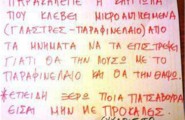 ΠΑΡΑΚΑΛΕΙΤΑΙ Η ΚΑΡΙΟΛΑ
ΠΟΥ ΚΛΕΒΕΙ ΜΙΚΡΟΑΝΤΙΚΕΙΜΕΝΑ
(ΓΛΑΣΤΡΕΣ-ΠΑΡΑΦΙΝΕΛΑΙΟ) ΑΠΟ
ΤΑ ΜΝΗΜΑΤΑ ΝΑ ΤΑ ΕΠΙΣΤΡΕΨΕΙ
ΓΙΑΤΙ ΘΑ ΤΗΝ ΛΟΥΖΩ ΜΕ ΤΟ
ΠΑΡΑΦΙΝΕΛΑΙΟ ΚΑΙ ΘΑ ΤΗΝ ΘΑΨΩ.
*ΕΠΕΙΔΗ ΞΕΡΩ ΠΟΙΑ ΠΑΤΣΑΒΟΥΡΑ
ΕΙΣΑΙ ΜΗΝ ΜΕ ΠΡΟΚΑΛΕΣ